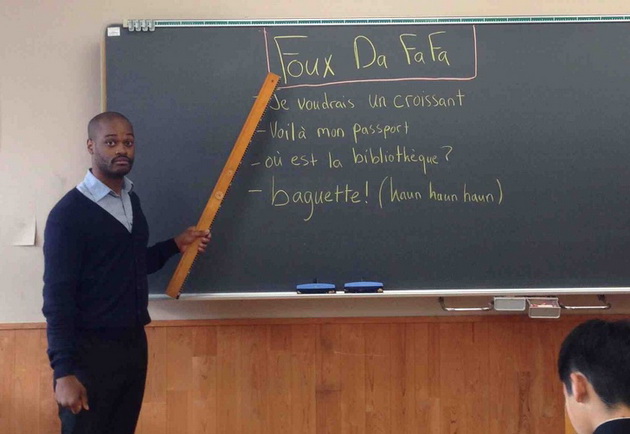 Foux Da FaFa
- Je voudrais un croissant
- Voilà mon passport
- où est la bibliothèque?
- baguette! (haun haun haun)